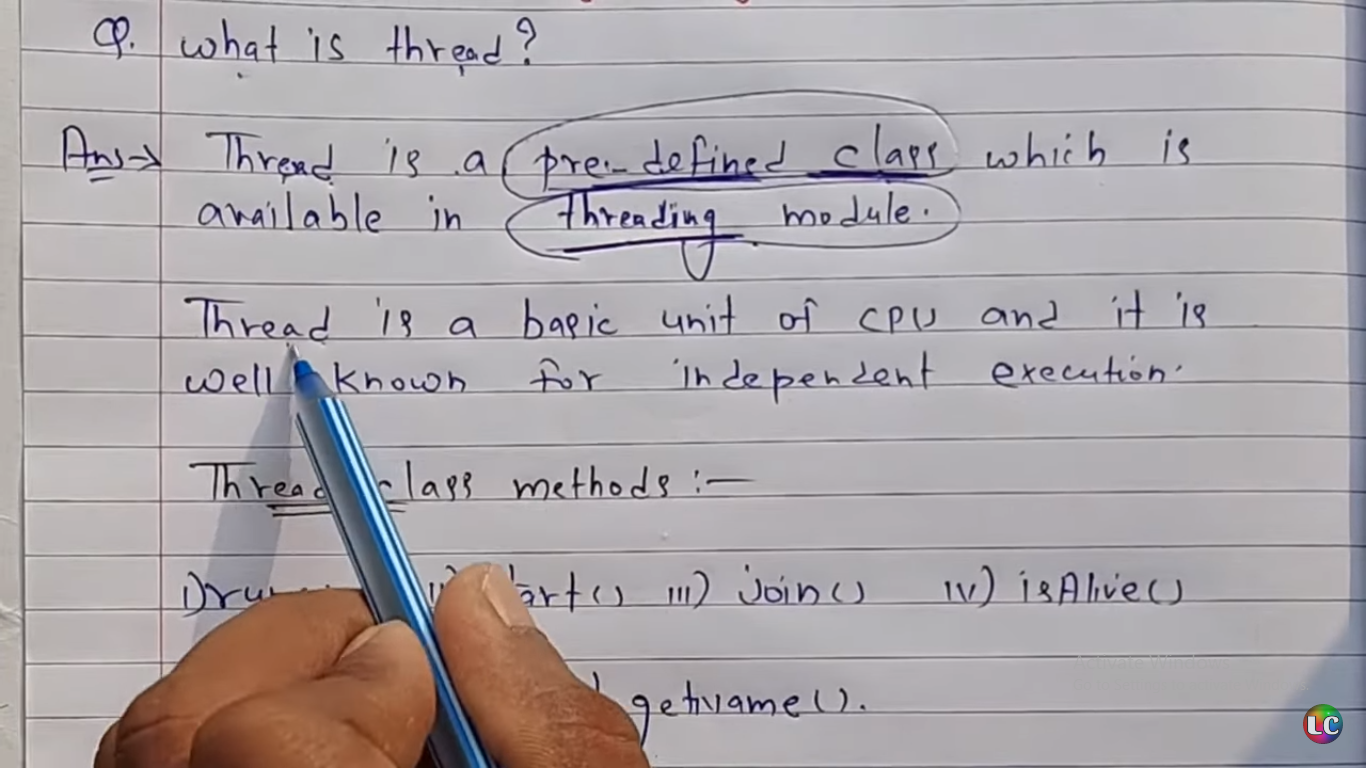 Q. what is thread?
Ans→ Thread is a pre-defined class which is
available in threading module.
Thread is a basic unit of CPU and it is
well known for independent execution.
Thread class methods :—
iii) Join() iv) isAlive()
getName().
LC